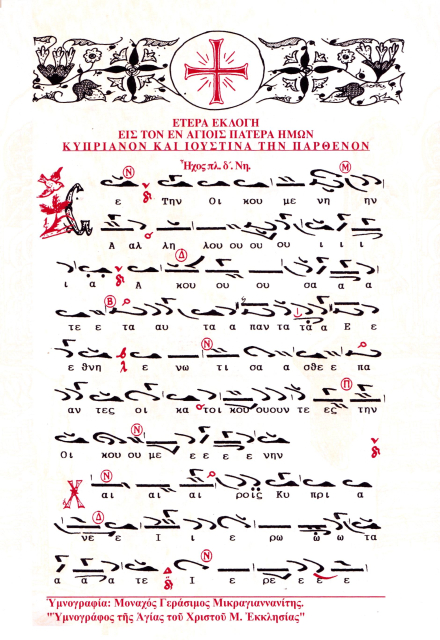 ΕΤΕΡΑ ΕΚΛΟΓΗ
ΕΙΣ ΤΟΝ ΕΝ ΑΓΙΟΙΣ ΠΑΤΕΡΑ ΗΜΩΝ
ΚΥΠΡΙΑΝΟΝ ΚΑΙ ΙΟΥΣΤΙΝΑ ΤΗΝ ΠΑΡΘΕΝΟΝ
Ἦχος πλ. δ΄. Νη.
ε Την Οι κου με νη ην
Α αλ λη λου ου ου ου ι ι ι
ι α Α κου ου ου σα α α
τε ε τα αυ τα α παν τα τα α Ε ε
ε θνη ε νω τι σα α σθε ε ε πα
αν τες οι κα τοι κου ουουν τε ες την
Οι κου ου με ε ε ε ε νην
Χ αι αι αι ροις Κυ πρι α
νε ε Ι ι ε ρω ω ω τα
α α α τε Ι ε ρε ε ε ε
Ὑμνογραφία: Μοναχός Γεράσιμος Μικραγιαννανίτης.
"Ὑμνογράφος τῆς Ἁγίας τοῦ Χριστοῦ Μ. Ἐκκλησίας"